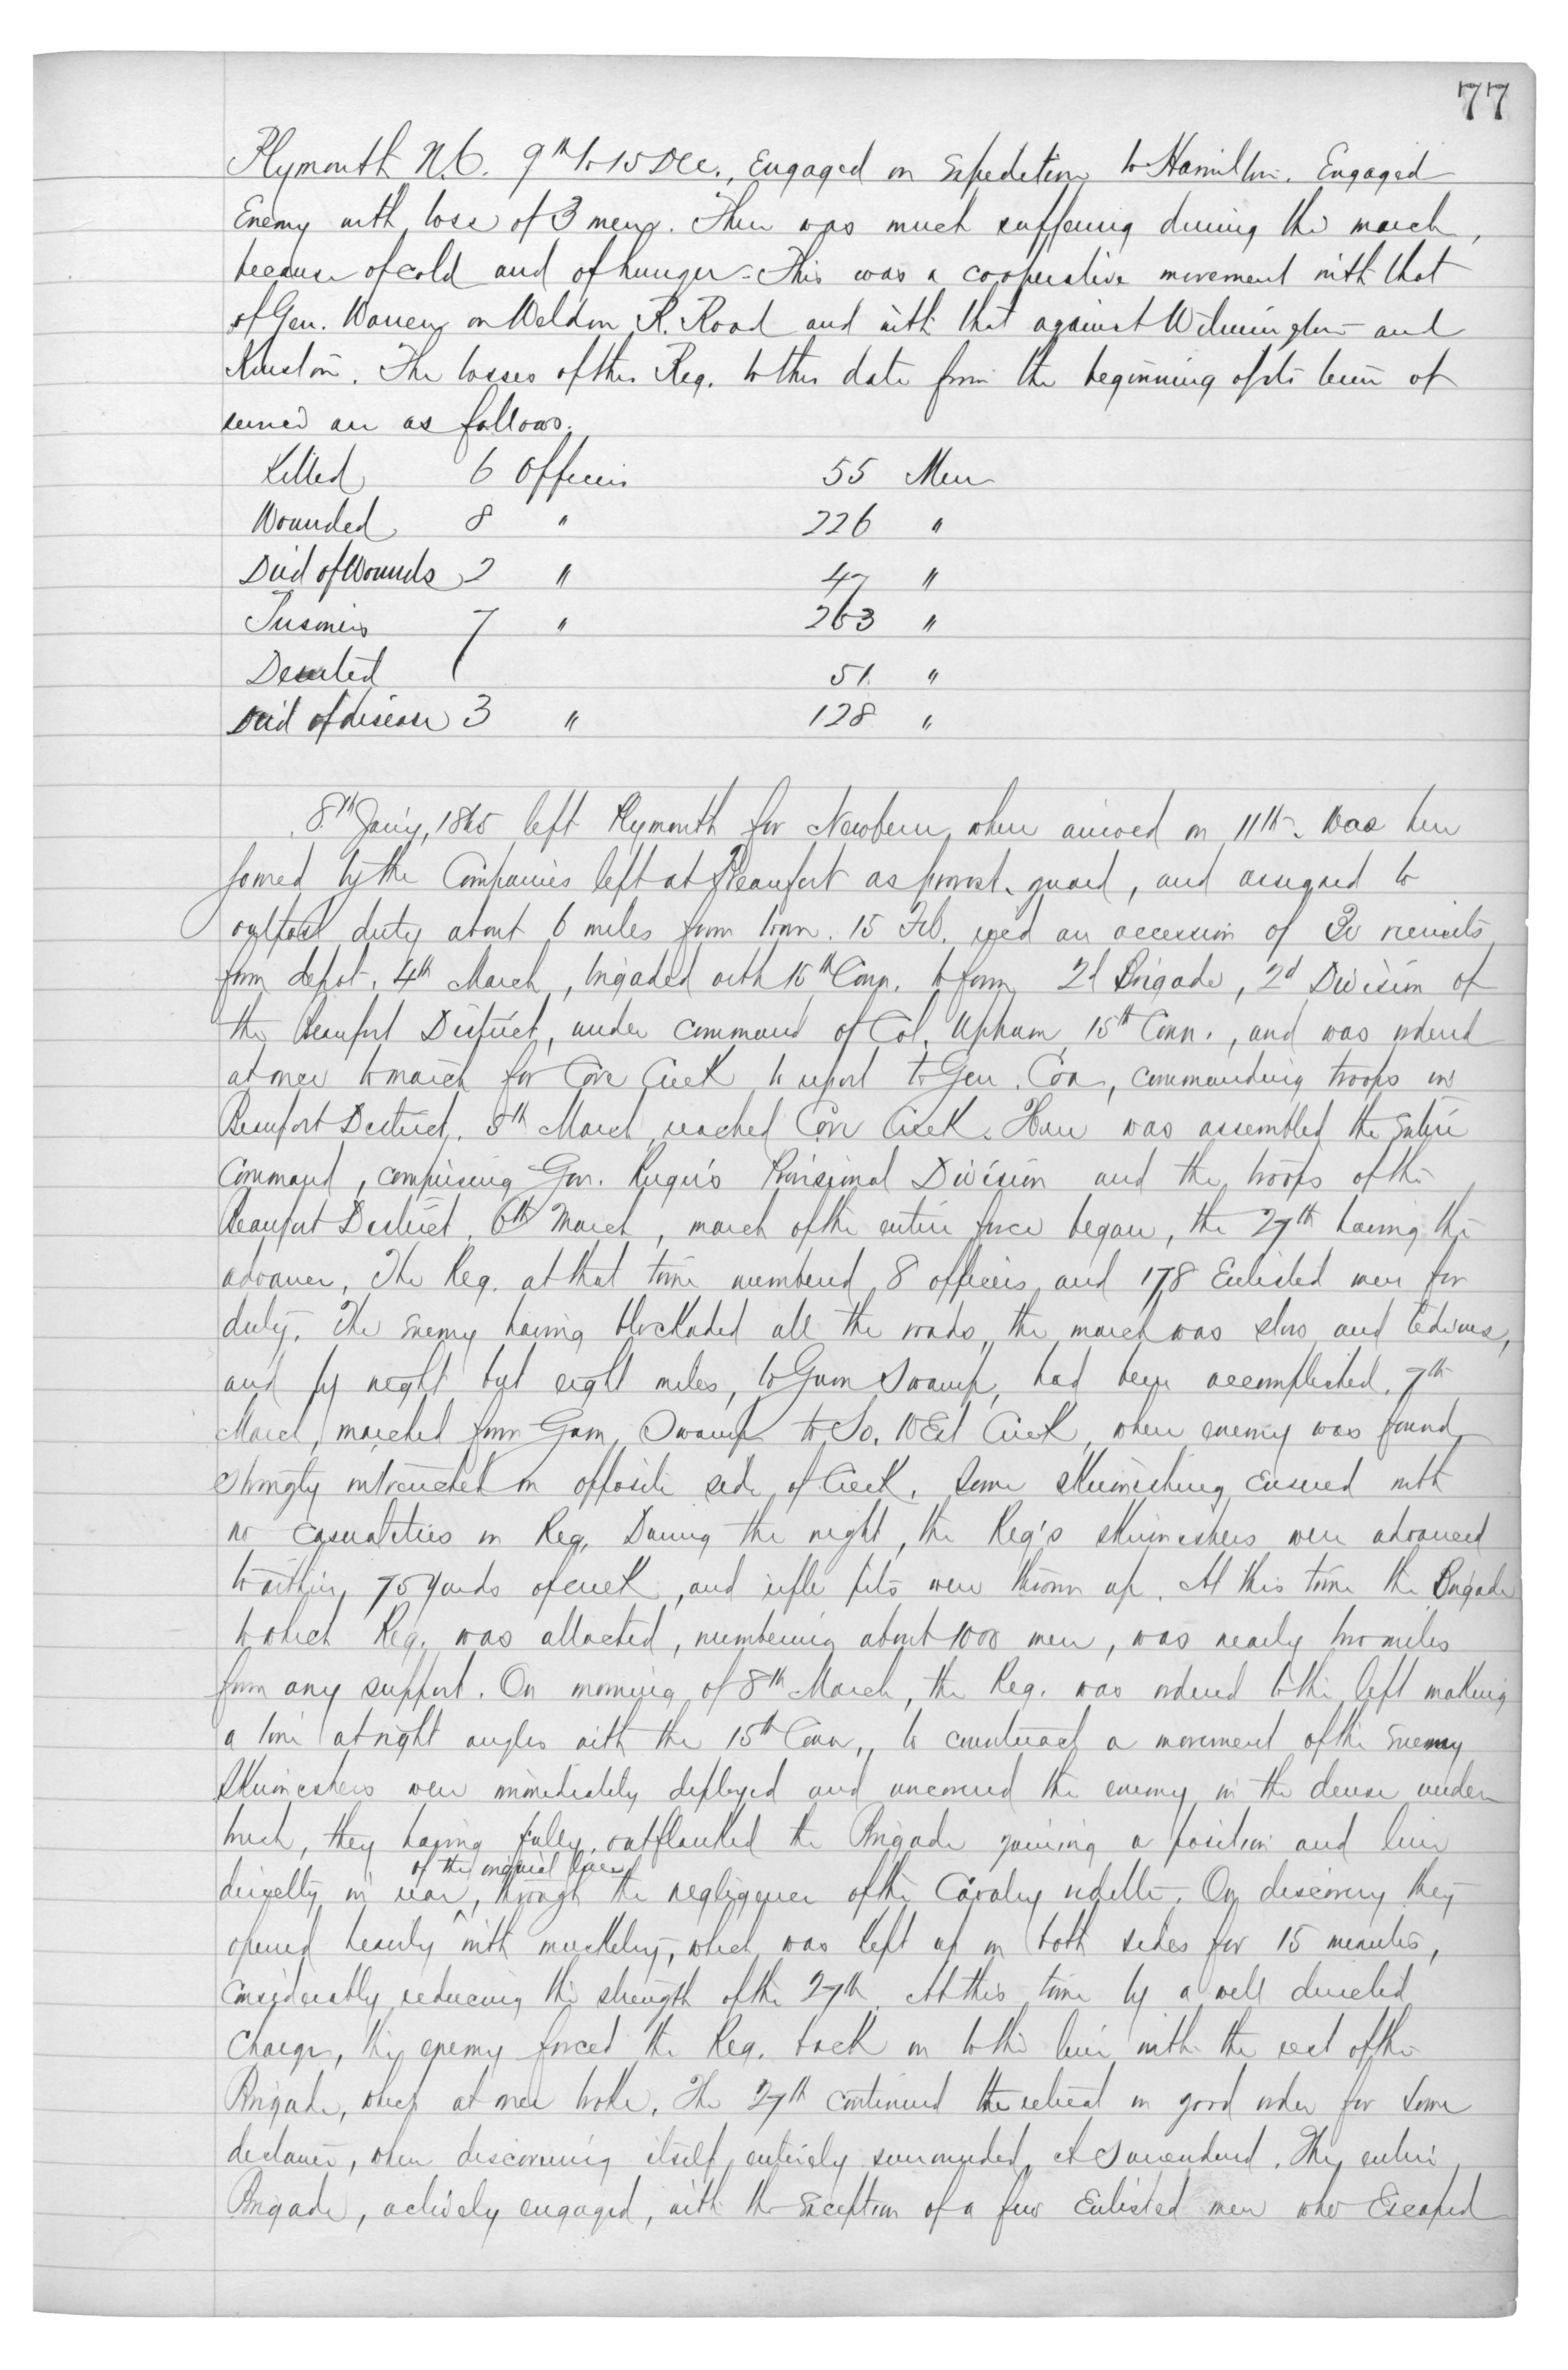 77
Plymouth N.C. 9th to 15 Dec., Engaged on Expedition to Hamilton. Engaged
Enemy with loss of 3 men. There was much suffering during the march,
because of cold and of hunger. This was a cooperative movement with that
of Gen. Warren on Weldon R. Road and with that against Wilmington and
Kinston. The losses of this Reg. to this date from the beginning of its term of
service are as follows.
Killed 6 Officers 55 Men
Wounded 8 " 226 "
Died of Wounds 2 " 47 "
Prisoners 7 " 263 "
Deserted 51 "
Died of disease 3 " 128 "
8th Jan'y, 1865 left Plymouth for Newbern, where arrived on 11th. Was here
joined by the Companies left at Beaufort as provost guard, and assigned to
outpost duty about 6 miles from town. 15 Feb. rec'd an accession of recruits
from depot. 4th March, brigaded with 15th Conn. to form 2d Brigade, 2d Division of
the Beaufort District, under command of Col. Upham 15th Conn., and was ordered
at once to march for Core Creek to report to Gen. Cox, commanding troops in
Beaufort District. 5th March reached Core Creek. Here was assembled the Entire
Command, comprising Gen. Ruger's Provisional Division and the troops of the
Beaufort District. 6th March, march of the entire force began, the 27th having the
advance. The Reg. at that time numbered 8 officers and 178 Enlisted men for
duty. The Enemy having blockaded all the roads, the march was slow and tedious,
and by night but eight miles, to Gum Swamp, had been accomplished. 7th
March, marched from Gum Swamp to So. West Creek, where enemy was found
strongly intrenched on opposite side of Creek. Some skirmishing Ensued with
no casualties in Reg. During the night, the Reg's skirmishers were advanced
to within 75 yards of creek, and rifle pits were thrown up. At this time the Brigade
to which Reg. was attached, numbering about 1000 men, was nearly two miles
from any support. On morning of 8th March, the Reg. was ordered to the left making
a line at right angles with the 15th Conn., to counteract a movement of the Enemy
Skirmishers were immediately deployed and uncovered the enemy in the dense under
brush, they having fully outflanked the Brigade gaining a position and line
of the original line
directly in rear, through the negligence of the Cavalry vidette. On discovery they
opened heavily with musketry, which was kept up on both sides for 15 minutes,
considerably reducing the strength of the 27th. At this time by a well directed
Charge, the enemy forced the Reg. back on to the line with the rest of the
Brigade, which at once broke. The 27th continued the retreat in good order for some
distance, when discovering itself entirely surrounded, it Surrendered. The entire
Brigade, actively engaged, with the Exception of a few Enlisted men who Escaped